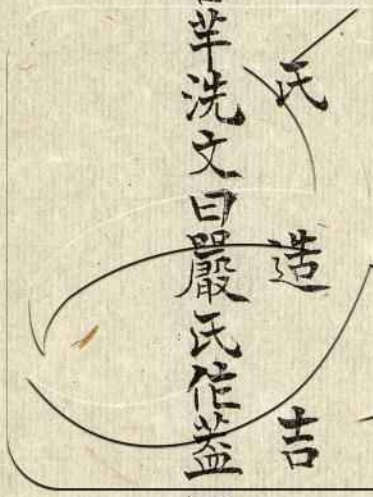 氏造吉
羊洗文曰嚴氏作蓋